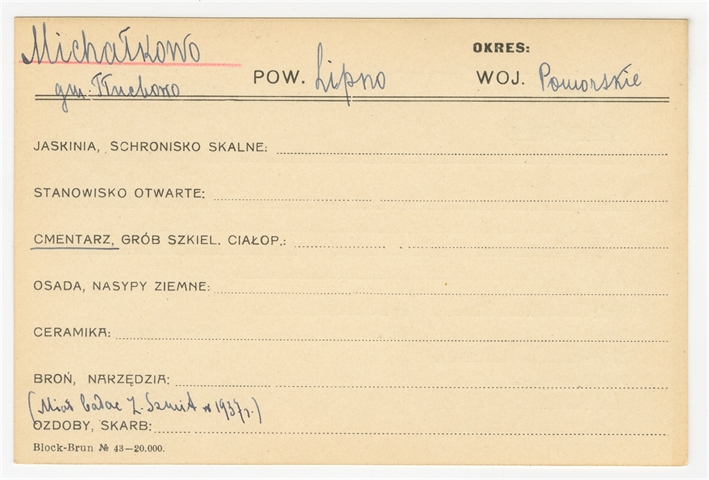 Michałkowo
OKRES:
gm. Tłuchowo POW. Lipno WOJ. Pomorskie
JASKINIA, SCHRONISKO SKALNE:
STANOWISKO OTWARTE:
CMENTARZ, GRÓB SZKIEL. CIAŁOP.:
OSADA, NASYPY ZIEMNE:
CERAMIKA:
BROŃ, NARZĘDZIA:
(Miał badać Z. Szmit w 1937 r.)
OZDOBY, SKARB:
Block-Brun № 43—20.000.